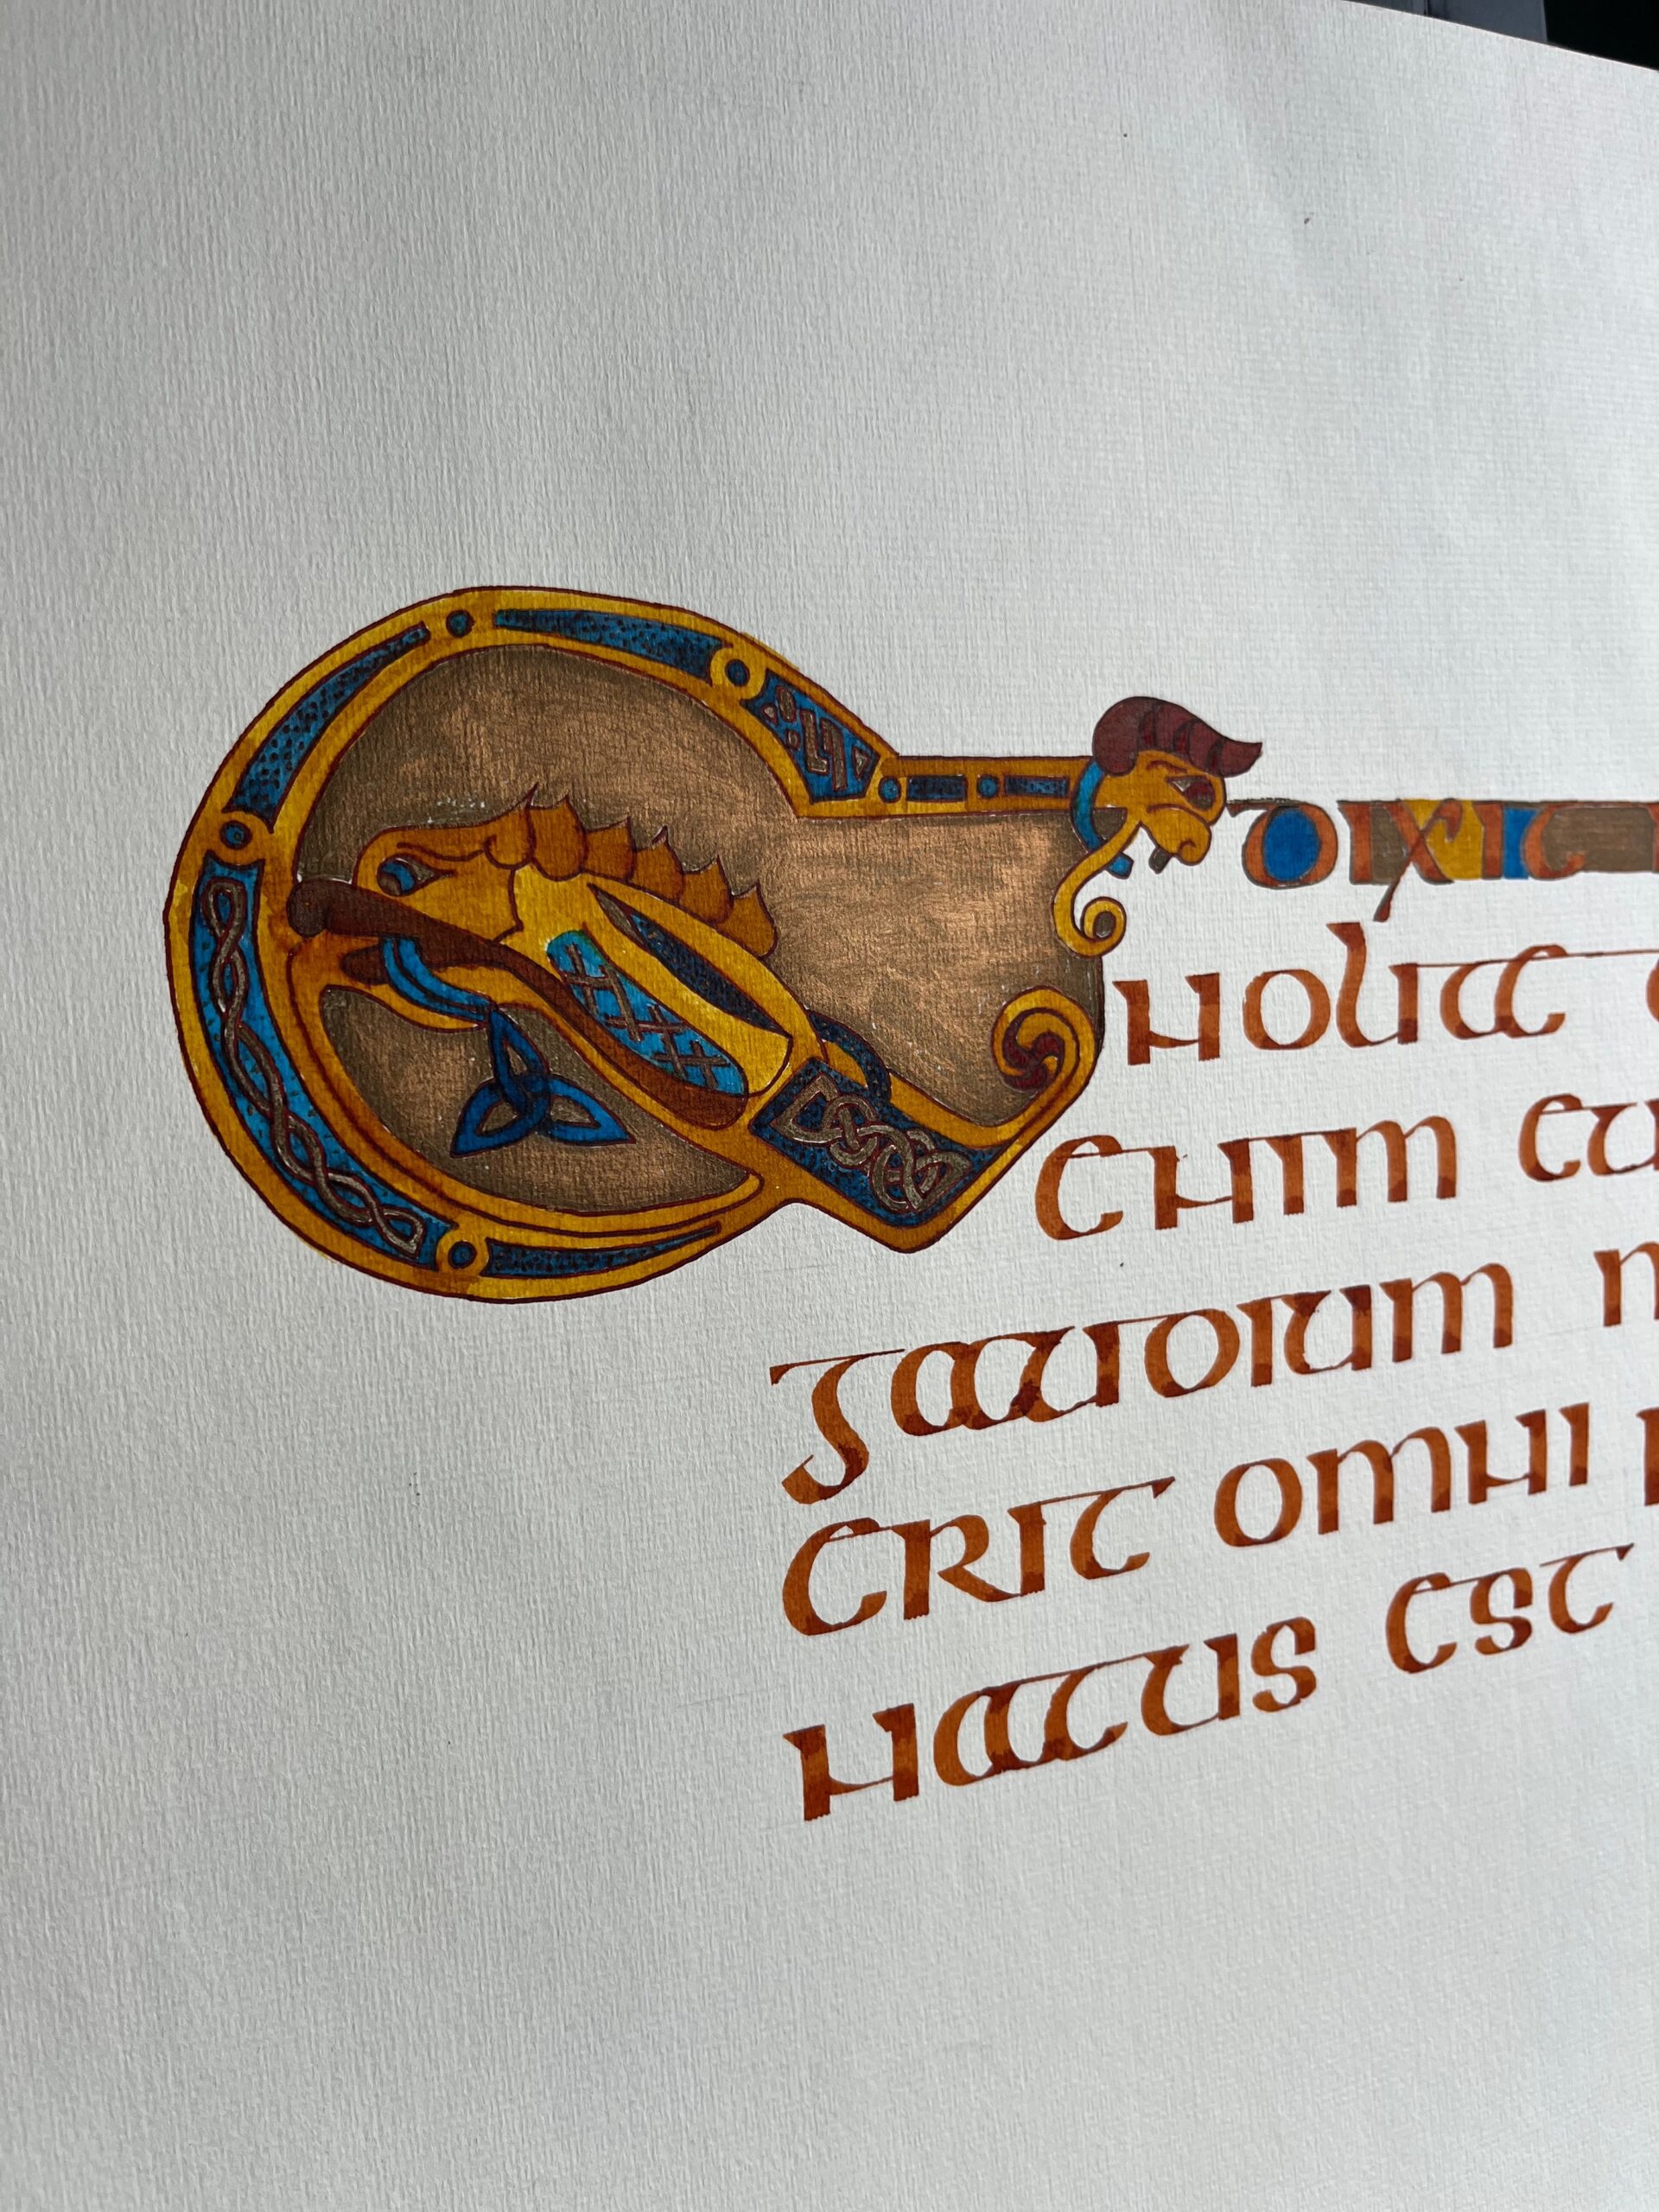 E dixit
nolite
enim eu
gaudium m
erit omni p
natus est